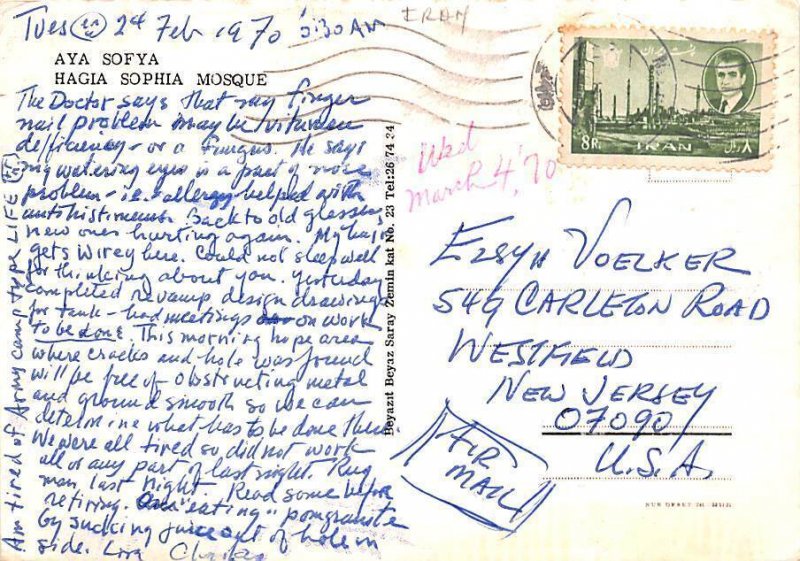 Tues 24 Feb 1970 5:30 AM
IRAN
AYA SOFYA
HAGIA SOPHIA MOSQUE
The Doctor says that my finger
nail problem may be vitamin
deficiency - or a fungus. He says
my watering eyes is a part of nose
problem - i.e. allergy helped with
antihistimenes. Back to old glasses
new ones hurting again. My hair
gets wirey here. Could not sleep well
for thinking about you. Yesterday
completed revamp design drawings
for tank - had meetings on work
to be done. This morning hope area
where cracks and hole was found
will be free of obstructing metal
and ground smooth so we can
determine what has to be done then.
We were all tired so did not work
all or any part of last night. Rug
man last night. Read some before
retiring. Am "eating" pomgranite
by sucking juice out of hole in
side. Love
Am tired of Army camp type LIFE
Beyazıt Beyaz Saray Zemin kat No. 23 Tel:26 74 24
Wed
March 4, '70
8R.
IRAN
۸
EZSYH VOELKER
549 CARLETON ROAD
WESTFIELD
NEW JERSEY
07090
U.S.A.
AIR
MAIL